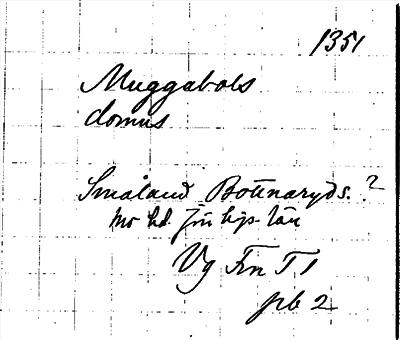 1351
Muggabols
domus
Småland Bottnaryds. ?
Mo hd. Jönkps län
Vg Frn T 1
pb 2